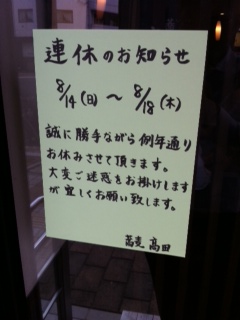 連休のお知らせ
8/14(日)～8/18(木)
誠に勝手ながら例年通り
お休みさせて頂きます。
大変ご迷惑をお掛けします
が宜しくお願い致します。
蕎麦 高田